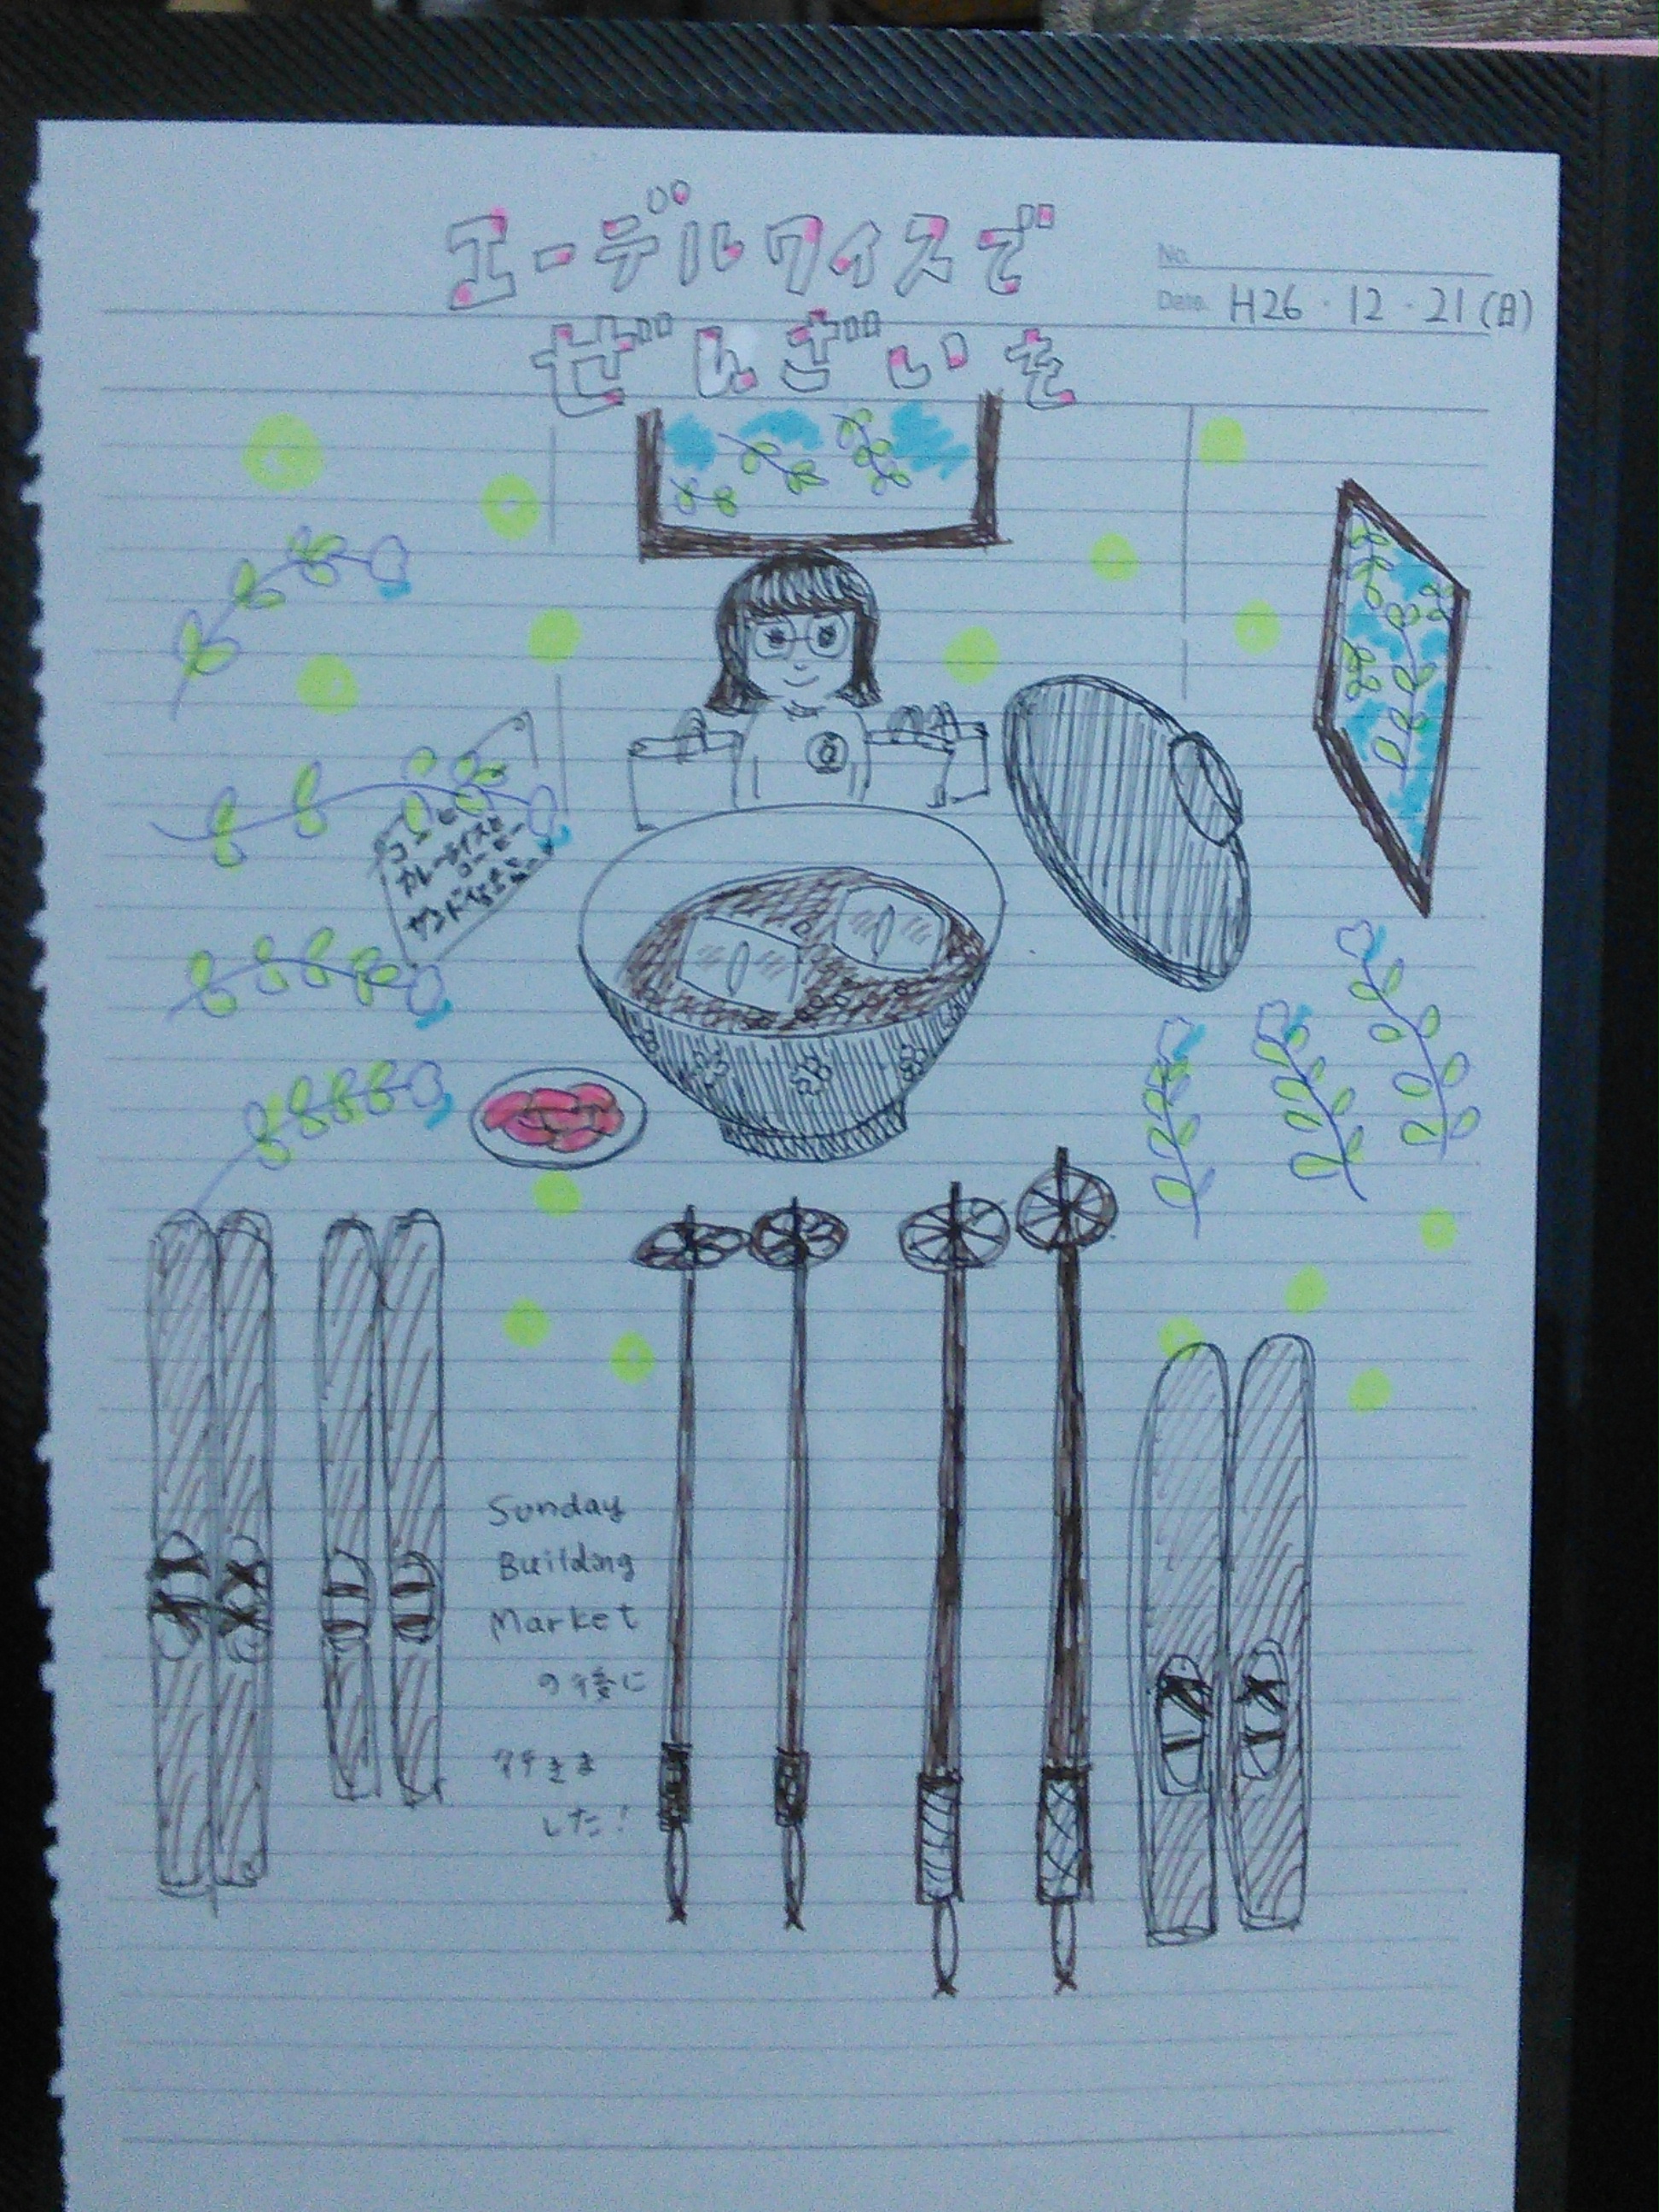 エーデルワイスで
ぜんざいを
No.
Date. H26・12・21(日)
コーヒー
カレーライスと
コーヒー
Sunday
Building
Market
の後に
行きま
した!